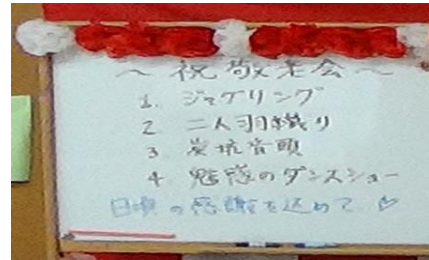 ～祝敬老会～
1. ジャグリング
2 二人羽織り
3 炭坑音頭
4. 魅惑のダンスショー
日頃の感謝を込めて♡